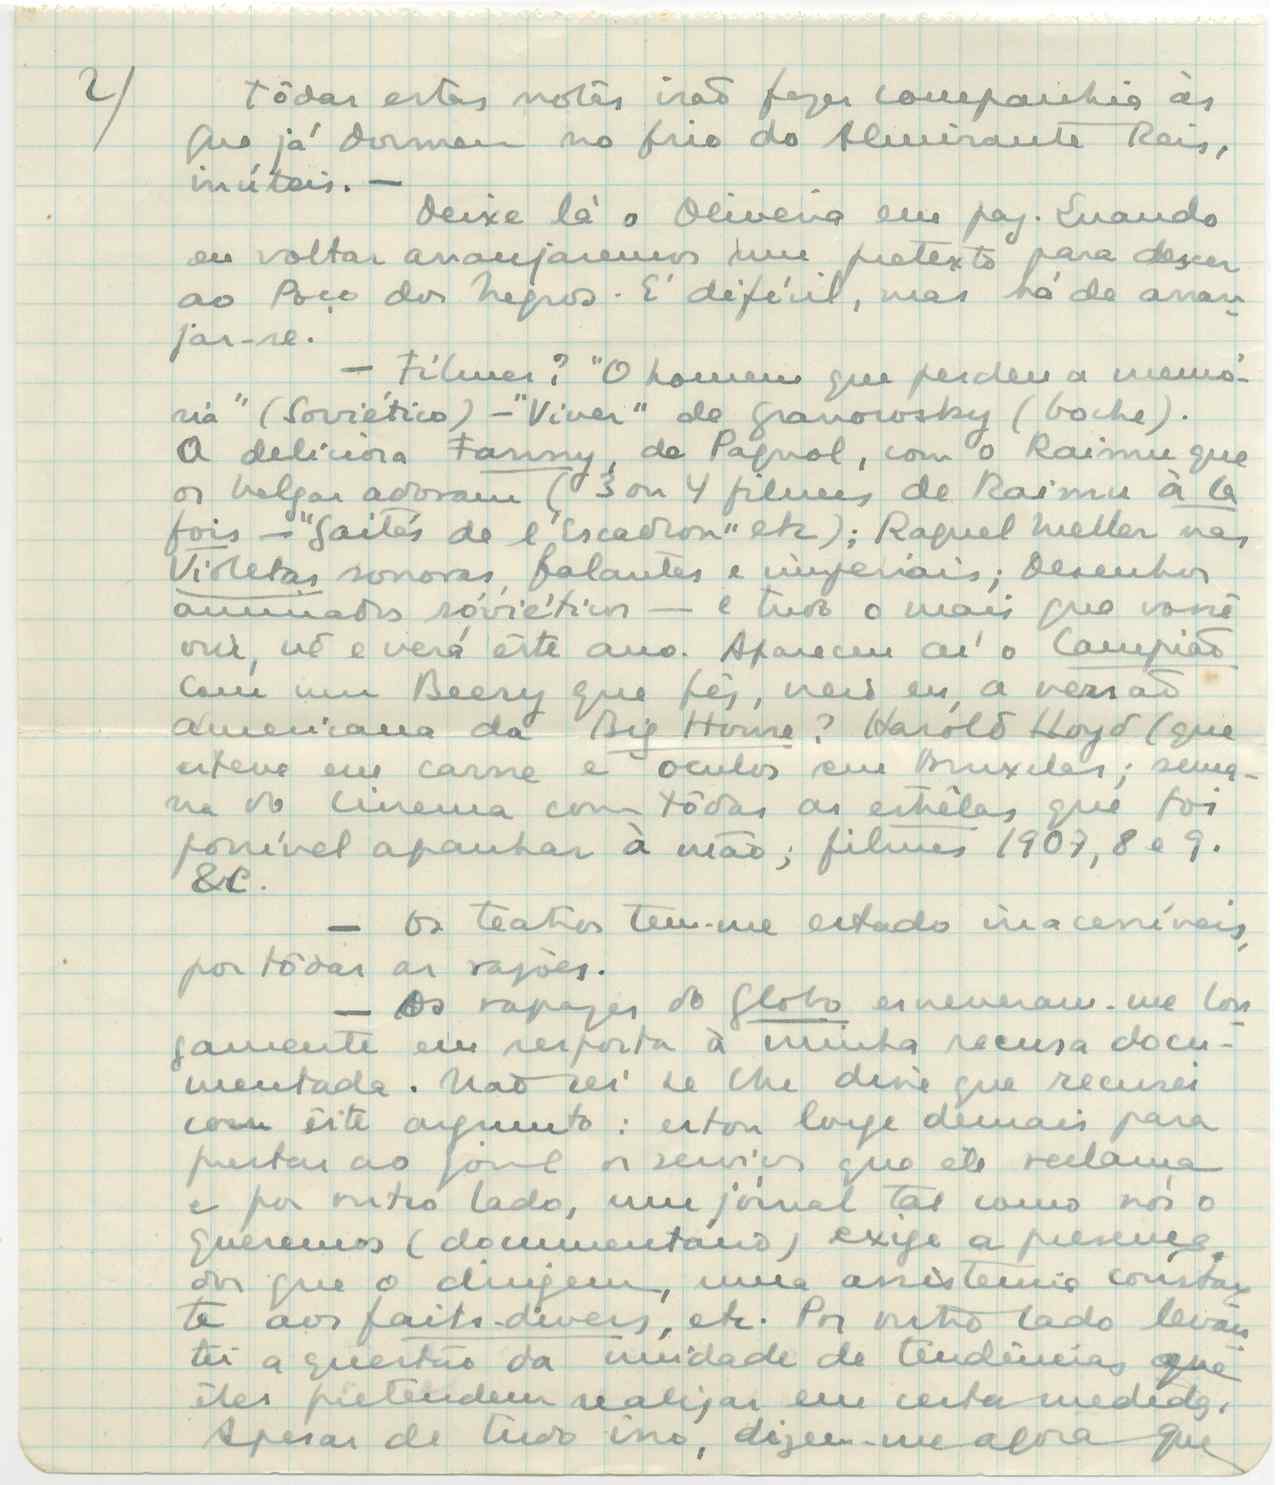 2/ Tôdas estas notas irão fazer companhia às
que já dormem no frio do Almirante Reis,
inúteis. —
Deixe lá o Oliveira em paz. Quando
eu voltar arranjaremos um pretexto para descer
ao Poço dos Negros. É difícil, mas há de arran-
jar-se.
— Filmes? "O homem que perdeu a memó-
ria" (Soviético) – "Viver" de Granowsky (boche).
A deliciosa Fanny, de Pagnol, com o Raimu que
os belgas adoram (3 ou 4 filmes de Raimu à la
fois – "Gaités de l'Escadron" etc); Raquel Meller nas
Violetas sonoras, falantes e imperiais; Desenhos
animados soviéticos — e tudo o mais que você
viu, vê e verá êste ano. Apareceu aí o Campião
com um Beery que fês, creio eu, a versão
americana da Big House? Harold Lloyd (que
esteve em carne e oculos em Bruxelas; sema-
na do cinema com tôdas as estrêlas que foi
possível apanhar à mão; filmes 1907, 8 e 9.
&c.
— Os teatros tem-me estado inacessíveis,
por tôdas as razões.
— Os rapazes do Globo escreveram-me lon-
gamente em resposta à minha recusa docu-
mentada. Não sei se lhe disse que recusei
com êste argumento: estou longe demais para
prestar ao jornal os serviços que ele reclama
e por outro lado, um jornal tal como nós o
queremos (documentário) exige a presença
dos que o dirigem, uma assistencia constan-
te aos faits-divers, etc. Por outro lado levan-
tei a questão da unidade de tendências que
êles pretendem realizar em certa medida.
Apesar de tudo isso, dizem-me agora que